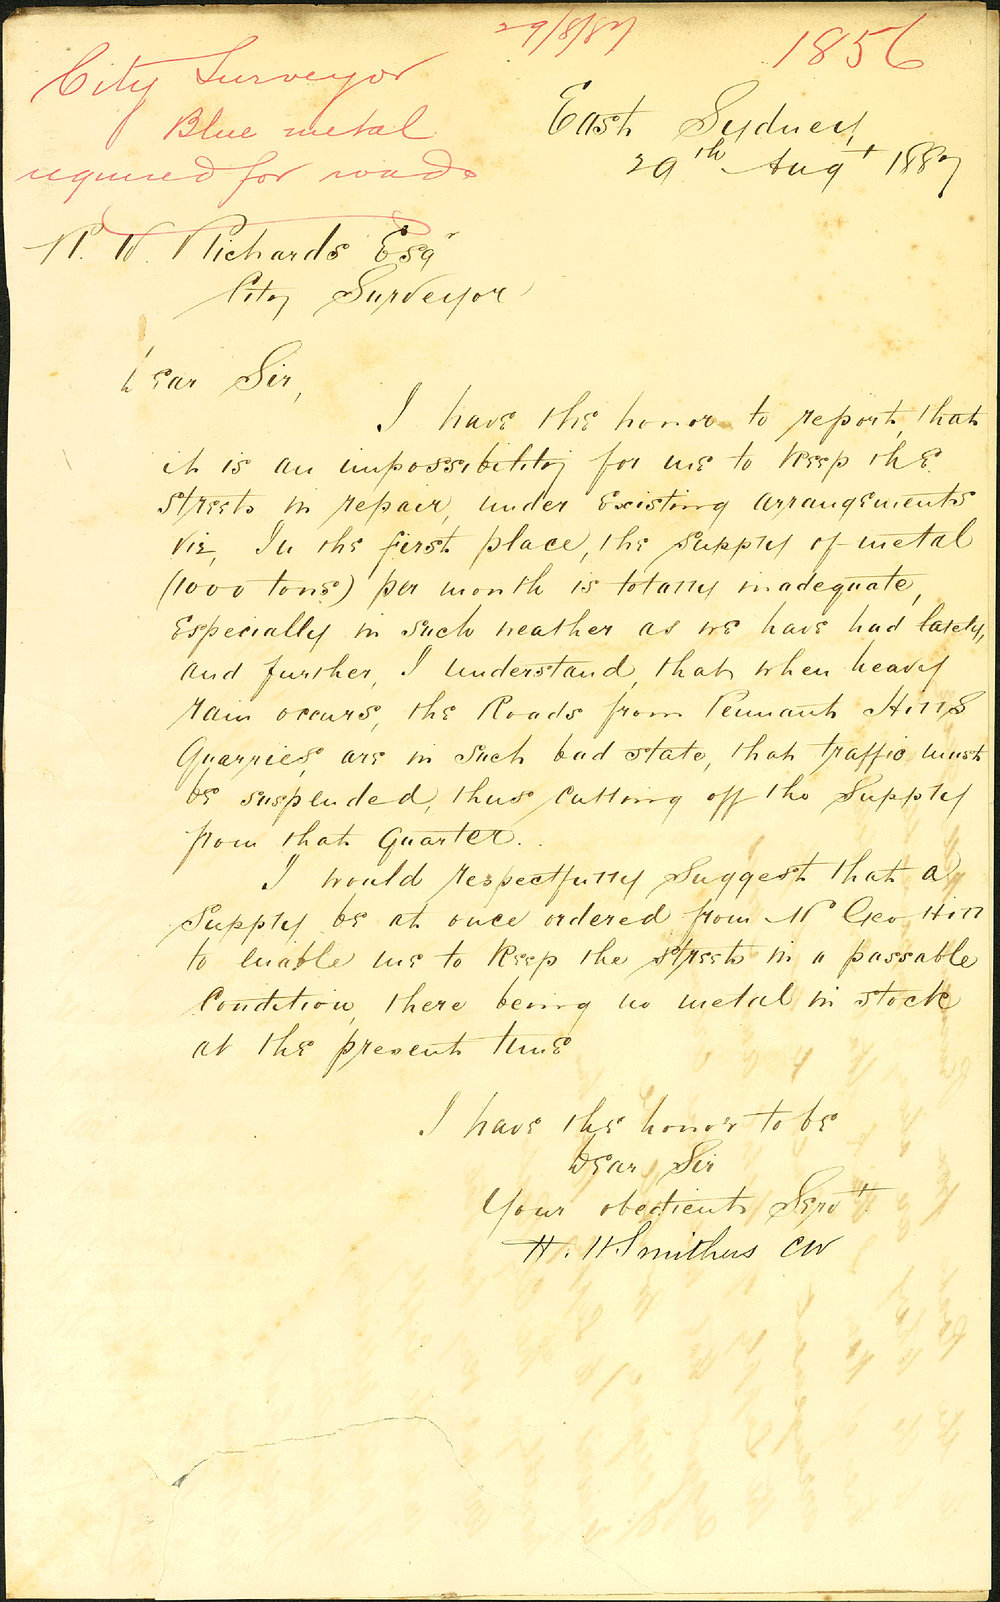 29/8/87
1856
City Surveyor
Blue metal
required for roads
East Sydney,
29th Augt 1887
R. W. Richards Esqr
City Surveyor
Dear Sir,
I have the honor to report, that
it is an impossibility for me to keep the
streets in repair, under existing arrangements
viz, In the first place, the supply of metal
(1000 tons) per month is totally inadequate,
Especially in such weather as we have had lately,
and further, I understand, that when heavy
rain occurs, the Roads from Pennant Hills
Quarries, are in such bad state, that traffic must
be suspended, thus cutting off the supply
from that Quarter.
I would respectfully suggest that a
supply be at once ordered from Mr Geo. Hill
to enable me to keep the streets in a passable
Condition, there being no metal in stock
at the present time
I have the honor to be
Dear Sir
Your obedient Servt
H. H Smithers CW